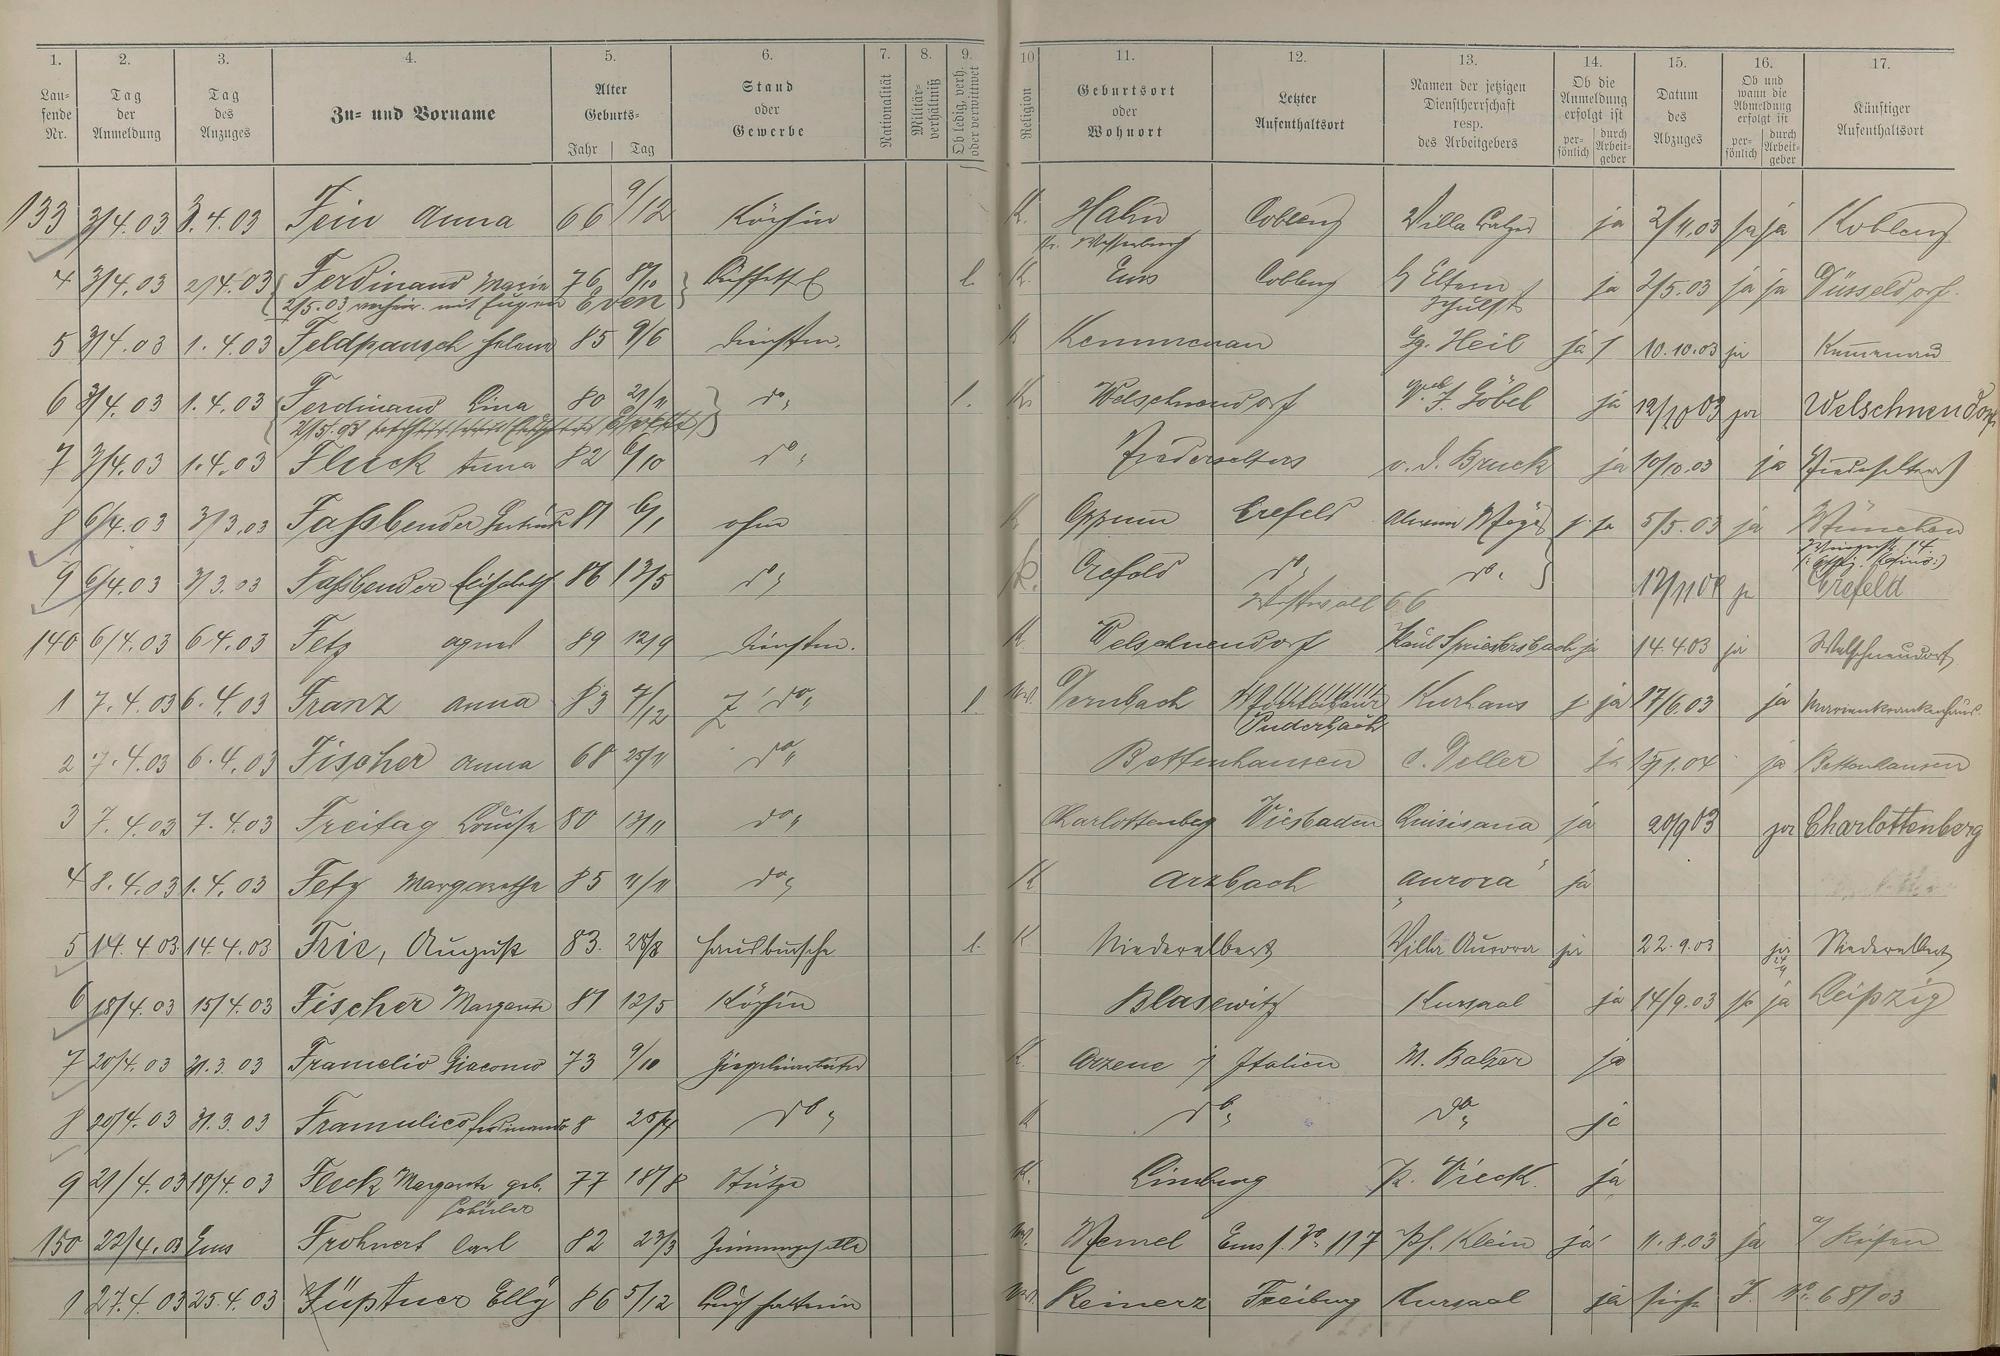 1. 2. 3. 4. 5. 6. 7. 8. 9. 10 11. 12. 13. 14. 15. 16. 17.
Lau-fende Nr. Tag der Anmeldung Tag des Anzuges Zu- und Vorname Alter Geburts- Jahr Tag Stand oder Gewerbe Nationalität Militär-verhältniß Ob ledig, verh. oder verwittwet Religion Geburtsort oder Wohnort Letzter Aufenthaltsort Namen der jetzigen Dienstherrschaft resp. des Arbeitgebers Ob die Anmeldung erfolgt ist per-sönlich durch Arbeit-geber Datum des Abzuges Ob und wann die Abmeldung erfolgt ist per-sönlich durch Arbeit-geber Künftiger Aufenthaltsort
133 3/4.03 3.4.03 Fein Anna 66 9/12 Köchin K. Hahn Coblenz Villa Balzer ja 2/11.03 ja ja Koblenz
Kr. Westerburg
4 3/4.03 2/4.03 Ferdinand Marie 76 8/10 Buffetfrl l. K. Ems Coblenz b/ Eltern ja 2/5.03 ja ja Düsseldorf.
2/5.03 verheir. mit Eugen Even Schulstr
5 3/4.03 1.4.03 Feldpausch Helene 85 9/6 Dienstm. K Kemmenau Gg. Heil ja 10.10.03 ja Kemmenau
6 3/4.03 1.4.03 Ferdinand Lina 80 21/11 do l. K. Welschneudorf J. Göbel ja 12/10 03 ja Welschneudorf
2/5.03
7 3/4.03 1.4.03 Fluck Anna 82 6/10 do Niederselters v. d. Bruck ja 10/10.03 ja Niederselters
8 6/4.03 3/3.03 Faßbender Gertrude 81 6/1 ohne K Oppum Crefeld 5/5.03 ja München
14.
9 6/4.03 3/3.03 Faßbender Elisabeth 86 13/5 do K. Crefeld do do 12/11 04 ja Crefeld
Westwall 66
140 6/4.03 6 4.03 Fetz Agnes 89 12/9 Dienstm. K. Welschneudorf Paul Spriestersbach ja 14.4.03 ja Welschneudorf
1 7.4.03 6.4.03 Franz Anna 83 7/12 do l. Dernbach Montabaur Kurhaus ja 17/6.03 ja Marienkrankenhaus
Puderbach
2 7.4.03 6.4.03 Fischer Anna 68 25/11 do Bettenhausen C. Deller ja 15/1.04 ja Bettenhausen
3 7.4.03 7.4.03 Freitag Louise 80 13/11 do Charlottenberg Wiesbaden Quisisana ja 20/9 03 ja Charlottenberg
4 8.4.03 1.4.03 Fetz Margarethe 85 11/11 do K Arzbach "Aurora" ja
5 14.4 03 14.4.03 Frie, August 83. 28/8 Hausbursche l. K Niederelbert Villa Aurora ja 22.9.03 ja Niederelbert
24/9
6 18/4.03 15/4.03 Fischer Margarete 81 12/5 Köchin Blasewitz Kursaal ja 14/9.03 ja Leipzig
7 20/4.03 31.3.03 Framelio Giacomo 73 9/10 Ziegeleiarbeiter K. Arzene i/ Italien M. Balzer ja
8 20/4.03 31.3.03 Framulico Ferdinando 8 25/4 do K do do ja
9 21/4.03 18/4.03 Fleck Margarete geb. 77 18/8 Stütze K. Limburg P. Vieck. ja
150 22/4.03 Ems Frohnert Carl 82 23/3 Zimmergeselle Memel Ems 117 Klein ja 11.8.03 ja a/ Reisen
1 27.4.03 25.4.03 Füßtner Elly 86 5/12 Buchhalterin Reinerz Freiburg Kursaal ja siehe J. No. 68/03